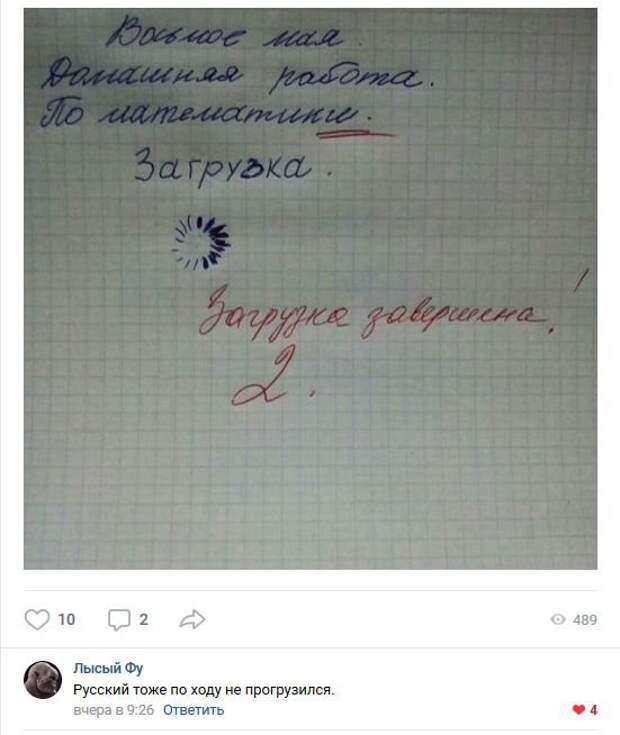 Восьмое мая.
Домашняя работа.
По математики.
Загрузка.
Загрузка завершена!
2.
10
2
489
Лысый Фу
Русский тоже по ходу не прогрузился.
вчера в 9:26 Ответить
4